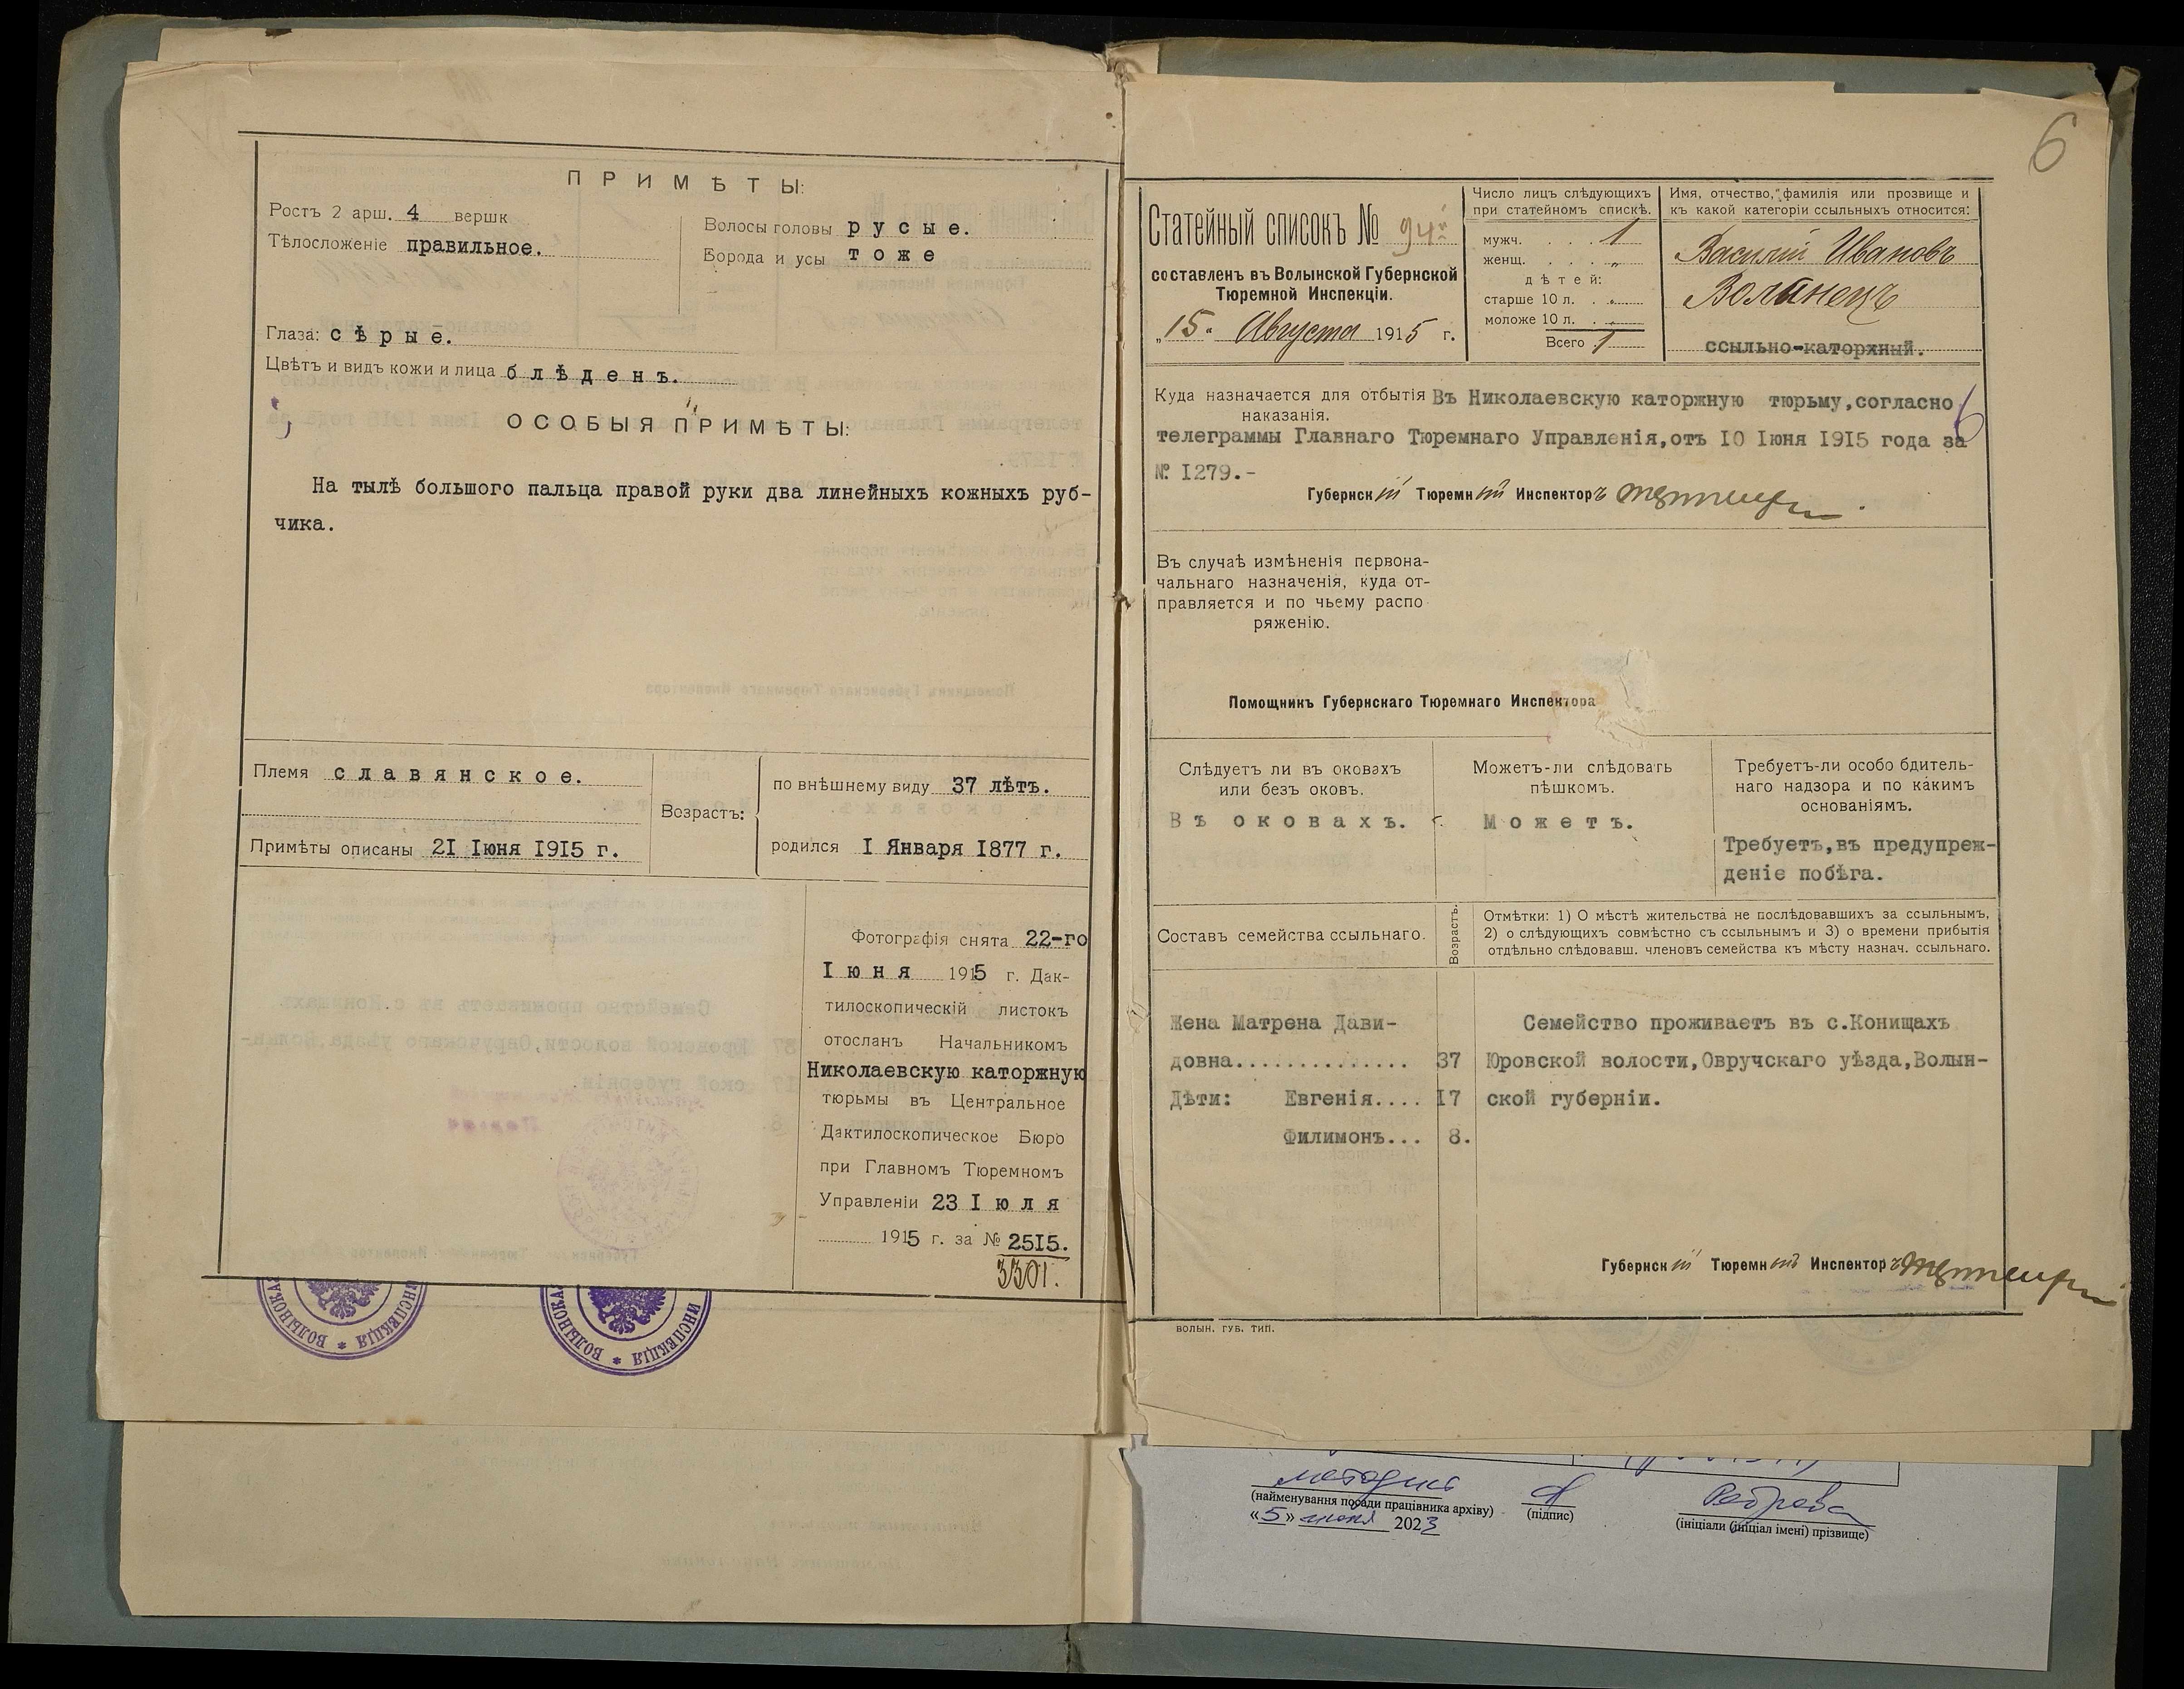 ПРИМѢТЫ:
Ростъ 2 арш. 4 вершк
Тѣлосложеніе правильное.
Волосы головы русые.
Борода и усы тоже
Глаза: сѣрые.
Цвѣтъ и видъ кожи и лица блѣденъ.
ОСОБЫЯ ПРИМѢТЫ:
На тылѣ большого пальца правой руки два линейныхъ кожныхъ руб-
чика.
Племя славянское.
Примѣты описаны 21 Іюня 1915 г.
Возрастъ:
по внѣшнему виду 37 лѣтъ.
родился 1 Января 1877 г.
Фотографія снята 22-го
Іюня 1915 г. Дак-
тилоскопическій листокъ
отосланъ Начальникомъ
Николаевскую каторжную
тюрьмы въ Центральное
Дактилоскопическое Бюро
при Главномъ Тюремномъ
Управленіи 23 Іюля
1915 г. за № 2515.
3301.
ВОЛЫНСКА
ИНСПЕКЦІЯ
ВОЛЫНСКА
ИНСПЕКЦІЯ
6
Статейный списокъ № 94
составленъ въ Волынской Губернской
Тюремной Инспекціи.
„15" Августа 1915 г.
Число лицъ слѣдующихъ
при статейномъ спискѣ.
мужч. . . . 1
женщ. . . . . „
дѣтей:
старше 10 л. . „
моложе 10 л. . „
Всего 1
Имя, отчество, фамилія или прозвище и
къ какой категоріи ссыльныхъ относится:
Василій Ивановъ
Волынецъ
ссыльно-каторжный.
Куда назначается для отбытія
наказанія.
Въ Николаевскую каторжную тюрьму,согласно
6
телеграммы Главнаго Тюремнаго Управленія,отъ 10 Іюня 1915 года за
№ 1279.-
Губернскій Тюремный Инспекторъ
Въ случаѣ измѣненія первона-
чальнаго назначенія, куда от-
правляется и по чьему распо
ряженію.
Помощникъ Губернскаго Тюремнаго Инспектора
Слѣдуетъ ли въ оковахъ
или безъ оковъ.
Въ оковахъ.
Можетъ-ли слѣдовать
пѣшкомъ.
Можетъ.
Требуетъ-ли особо бдитель-
наго надзора и по какимъ
основаніямъ.
Требуетъ,въ предупреж-
деніе побѣга.
Составъ семейства ссыльнаго.
Возрастъ.
Отмѣтки: 1) О мѣстѣ жительства не послѣдовавшихъ за ссыльнымъ,
2) о слѣдующихъ совмѣстно съ ссыльнымъ и 3) о времени прибытія
отдѣльно слѣдовавш. членовъ семейства къ мѣсту назнач. ссыльнаго.
Жена Матрена Дави-
довна............... 37
Дѣти: Евгенія.... 17
Филимонъ... 8.
Семейство проживаетъ въ с.Конищахъ
Юровской волости,Овручскаго уѣзда,Волын-
ской губерніи.
Губернскій Тюремный Инспекторъ
ВОЛЫН. ГУБ. ТИП.
методист
(найменування посади працівника архіву)
(підпис)
(ініціали (ініціал імені) прізвище)
«5» 2023